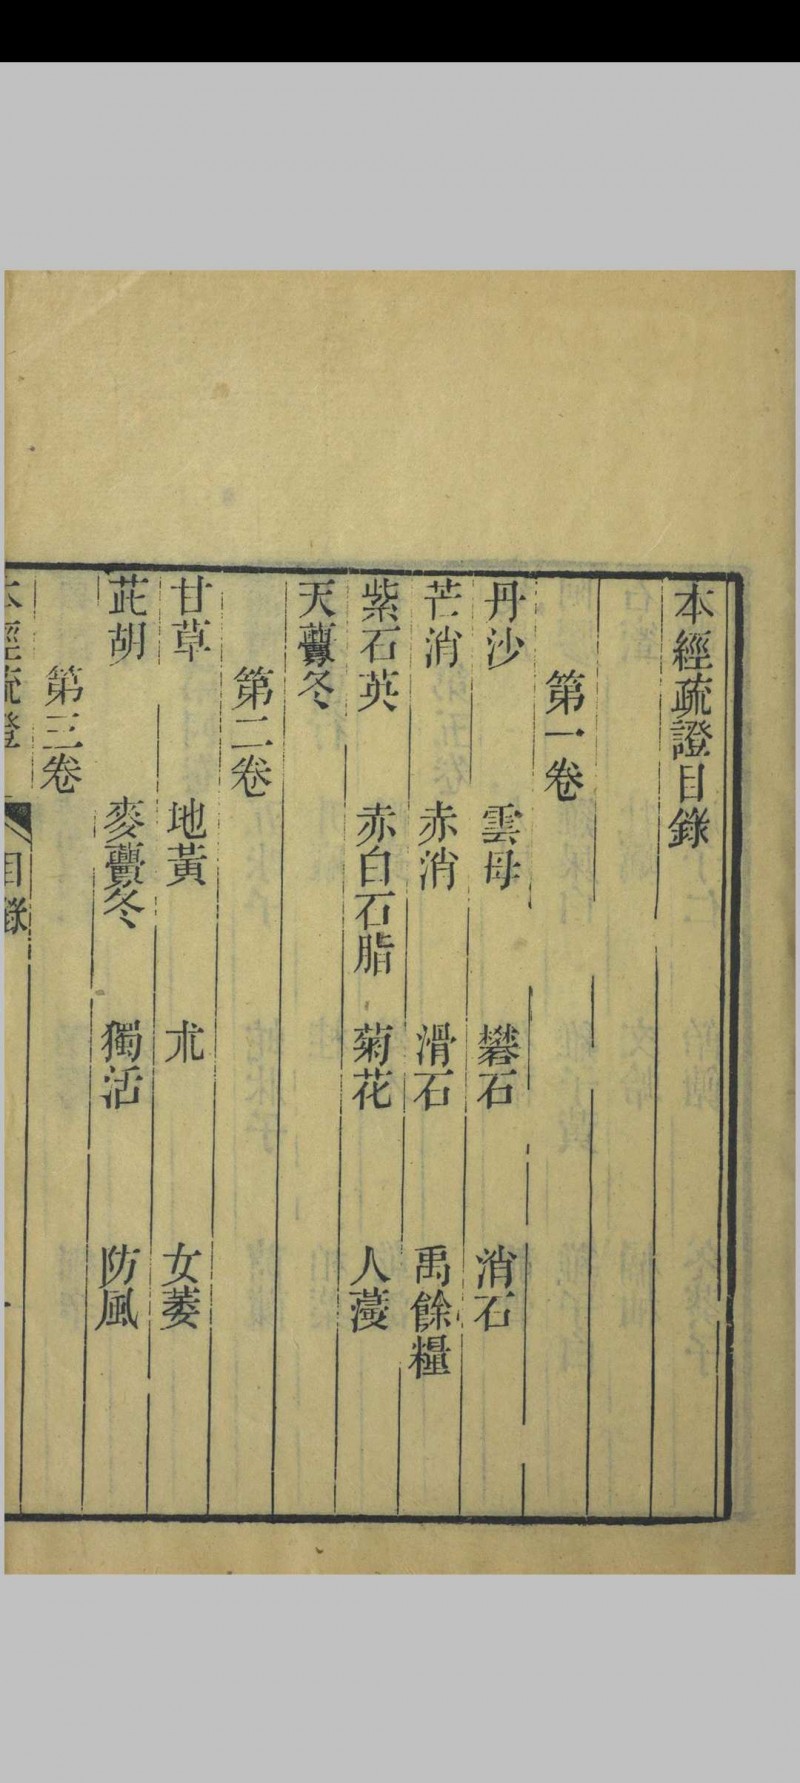 本經疏證目錄
第一卷
丹沙 雲母 礬石 消石
芒消 赤消 滑石 禹餘糧
紫石英 赤白石脂 菊花 人薓
天虋冬
第二卷
甘草 地黃 朮 女萎
茈胡 麥虋冬 獨活 防風
第三卷
本經疏證 目錄